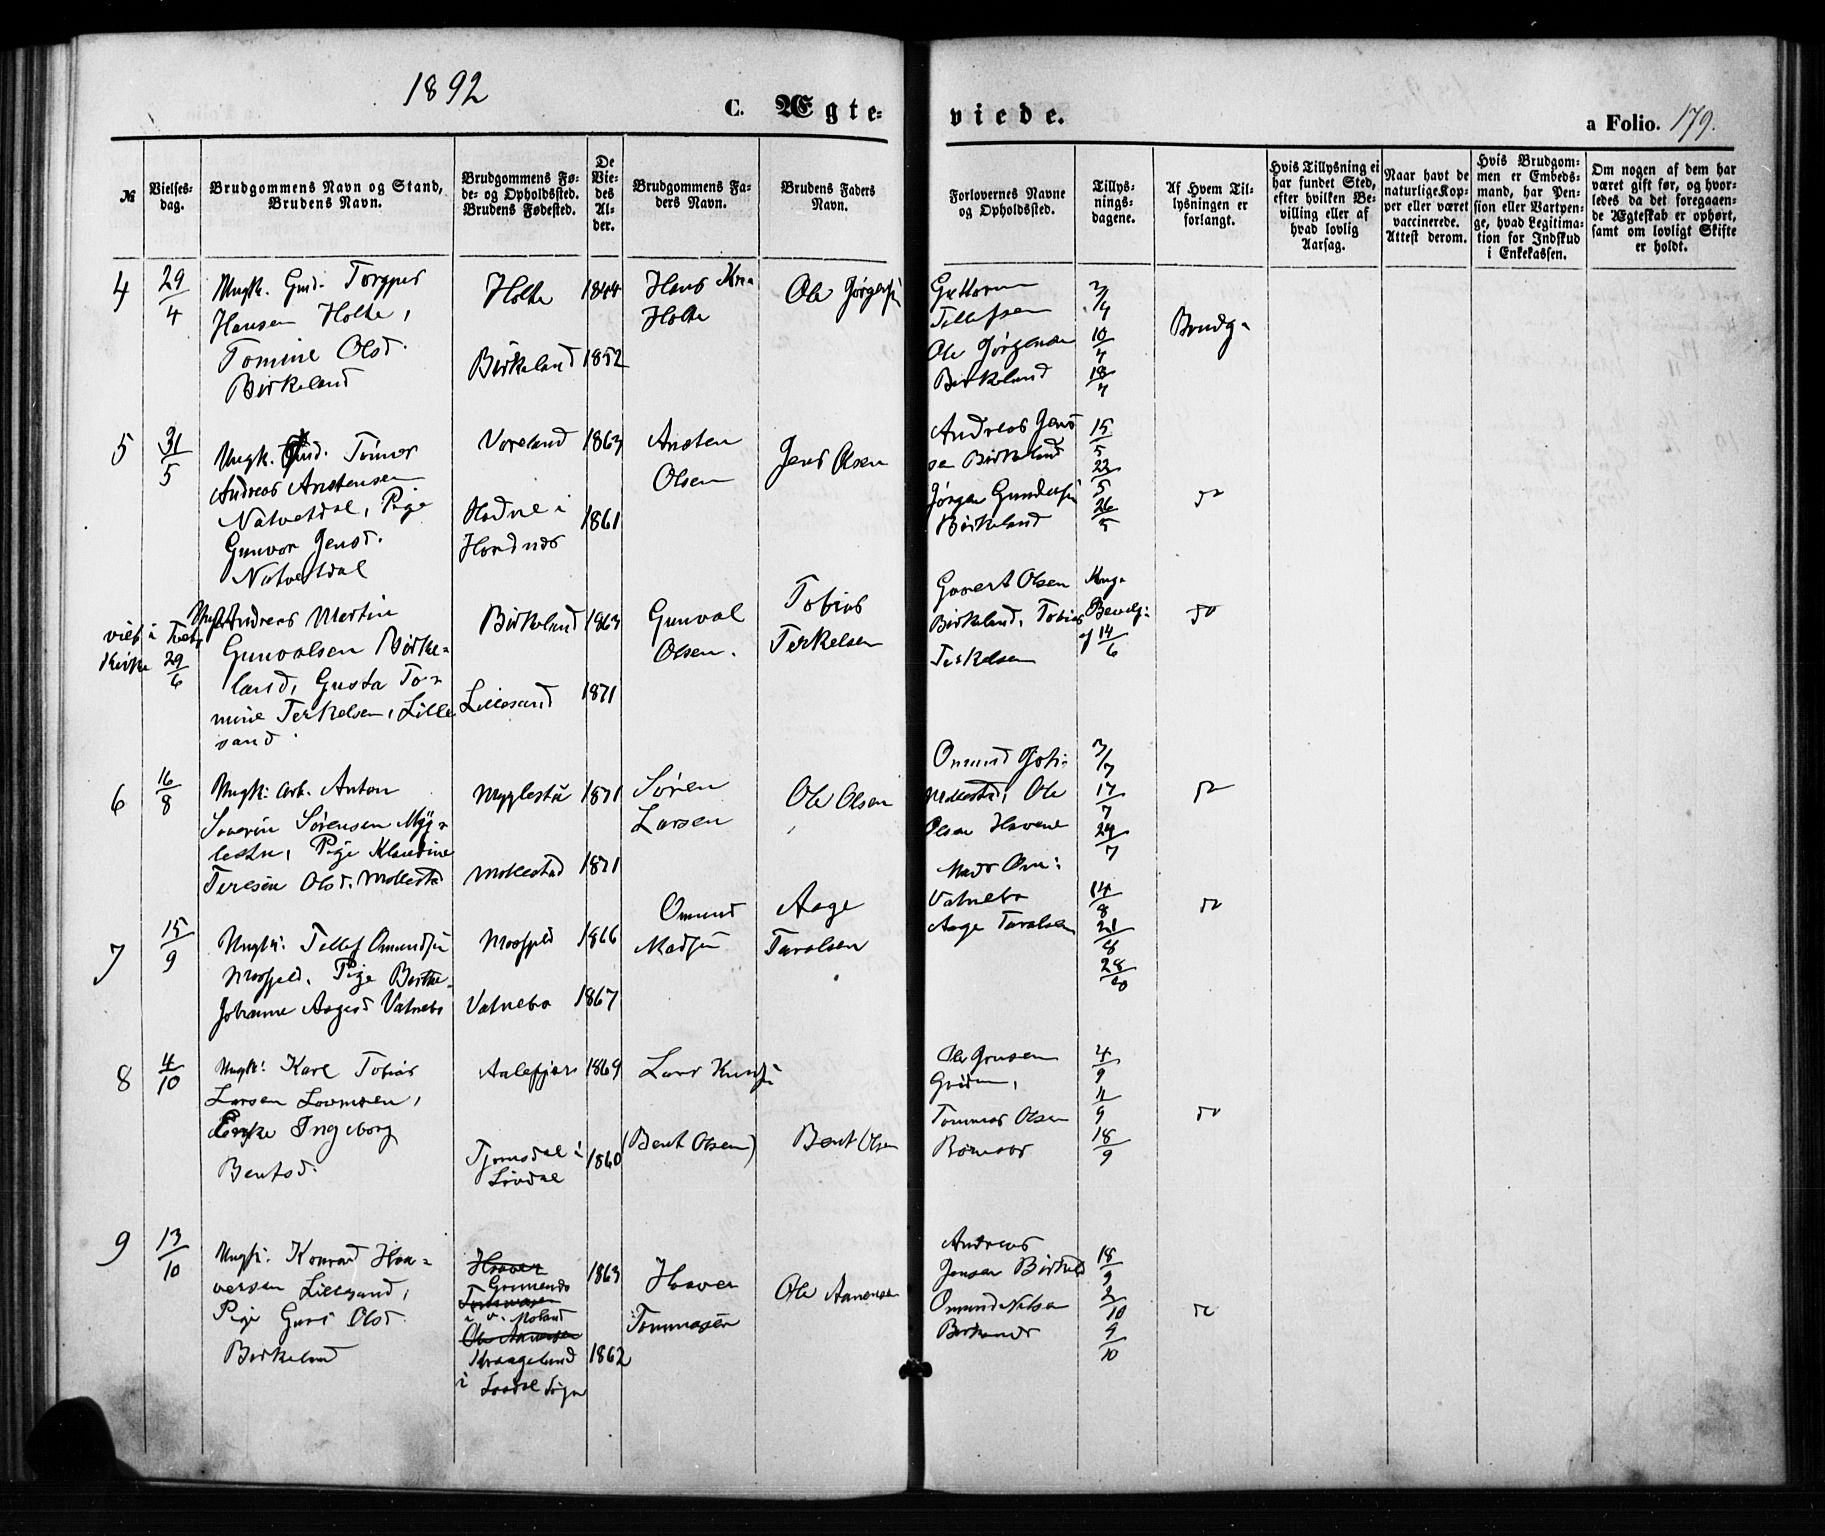 1892
C. Ægte-
viede.
a Folio. 179.
№
Vielses-
dag.
Brudgommens Navn og Stand,
Brudens Navn.
Brudgommens Fø-
de- og Opholdssted.
Brudens Fødested.
De
Vie-
des
Al-
der.
Brudgommens Fa-
ders Navn.
Brudens Faders
Navn.
Forlovernes Navne
og Opholdssted.
Tillys-
nings-
dagene.
Af Hvem Til-
lysningen er
forlangt.
Hvis Tillysning ei
har fundet Sted,
efter hvilken Be-
villing eller af
hvad lovlig
Aarsag.
Naar havt de
naturlige Kop-
per eller været
vaccinerede.
Attest derom.
Hvis Brudgom-
men er Embeds-
mand, har Pen-
sion eller Vartpen-
ge, hvad Legitima-
tion for Indskud
i Enkekassen.
Om nogen af dem har
været gift før, og hvor-
ledes da det foregaaen-
de Ægteskab er ophørt,
samt om lovligt Skifte
er holdt.
4
29/4
Ungk. Gmd. Torgjus
Hansen Holte,
Tomine Olsd.
Birkeland
Holte
Birkeland
1844
1852
Hans
Holte
Ole Jørgens.
Guttorm
Tellefsen
Ole Jørgensen
Birkeland
3/4
10/4
18/4
Brudg.
5
31/5
Ungk. Gmd. Tønnes
Andreas Anstensen
Natvetdal, Pige
Gunvor Jensd.
Natvetdal
Voreland
Hodne i
Hordnes
1863
1861
Ansten
Olsen
Jens Olsen
Andreas Jens
sen Birkeland
Jørgen Gunders.
Birkeland
15/5
22/5
26/5
do
viet i Tvet
Kirke 29/6
Ungk. Andreas Martin
Gunvalsen Birke-
land, Gusta To-
mine Terkelsen, Lille-
sand.
Birkeland
Lillesand
1863
1871
Gunval
Olsen.
Tobias
Terkelsen
Govert Olsen
Birkeland, Tobias
Terkelsen
Kng.
Bevilg.
af 14/6
do
6
16/8
Ungk. Arb. Anton
Severin Sørensen Myg-
lestu, Pige Klaudine
Teresie Olsd. Mollestad
Mygglestu
Mollestad
1871
1871
Søren
Larsen
Ole Olsen
Omund
Mollestad, Ole
Olsen Havene
3/7
17/7
24/7
do
7
15/9
Ungk. Tellef Omunds.
Mosfjeld, Pige Berthe
Johanne Aagesd Vatnebo
Mosfjeld
Vatnebo
1866
1867
Omund
Mads.
Aage
Taralsen
Mads Om:
Vatnebo
Aage Taralsen
14/8
21/8
28/10
do
8
4/10
Ungk: Karl Tobias
Larsen
Enke Ingeborg
Bentsd.
Aalefjær
Tjomsdal i
1869
1860
Lars
(Bent Olsen)
Bent Olsen
Ole Jonsen
Tommas Olsen
4/9
11/9
18/9
do
9
13/10
Ungk. Konrad Haa-
versen Lillesand,
Pige Guri Olsd.
Birkeland
Haaver
Grimenes
Tommasen
i V. Moland
Ole Aanensen
Kraageland
i Laudal Sogn
1863
1862
Haaver
Tommasen
Ole Aanensen
Andreas
Jensen Birkeld
Omund Nilsen
18/9
2/10
9/10
do